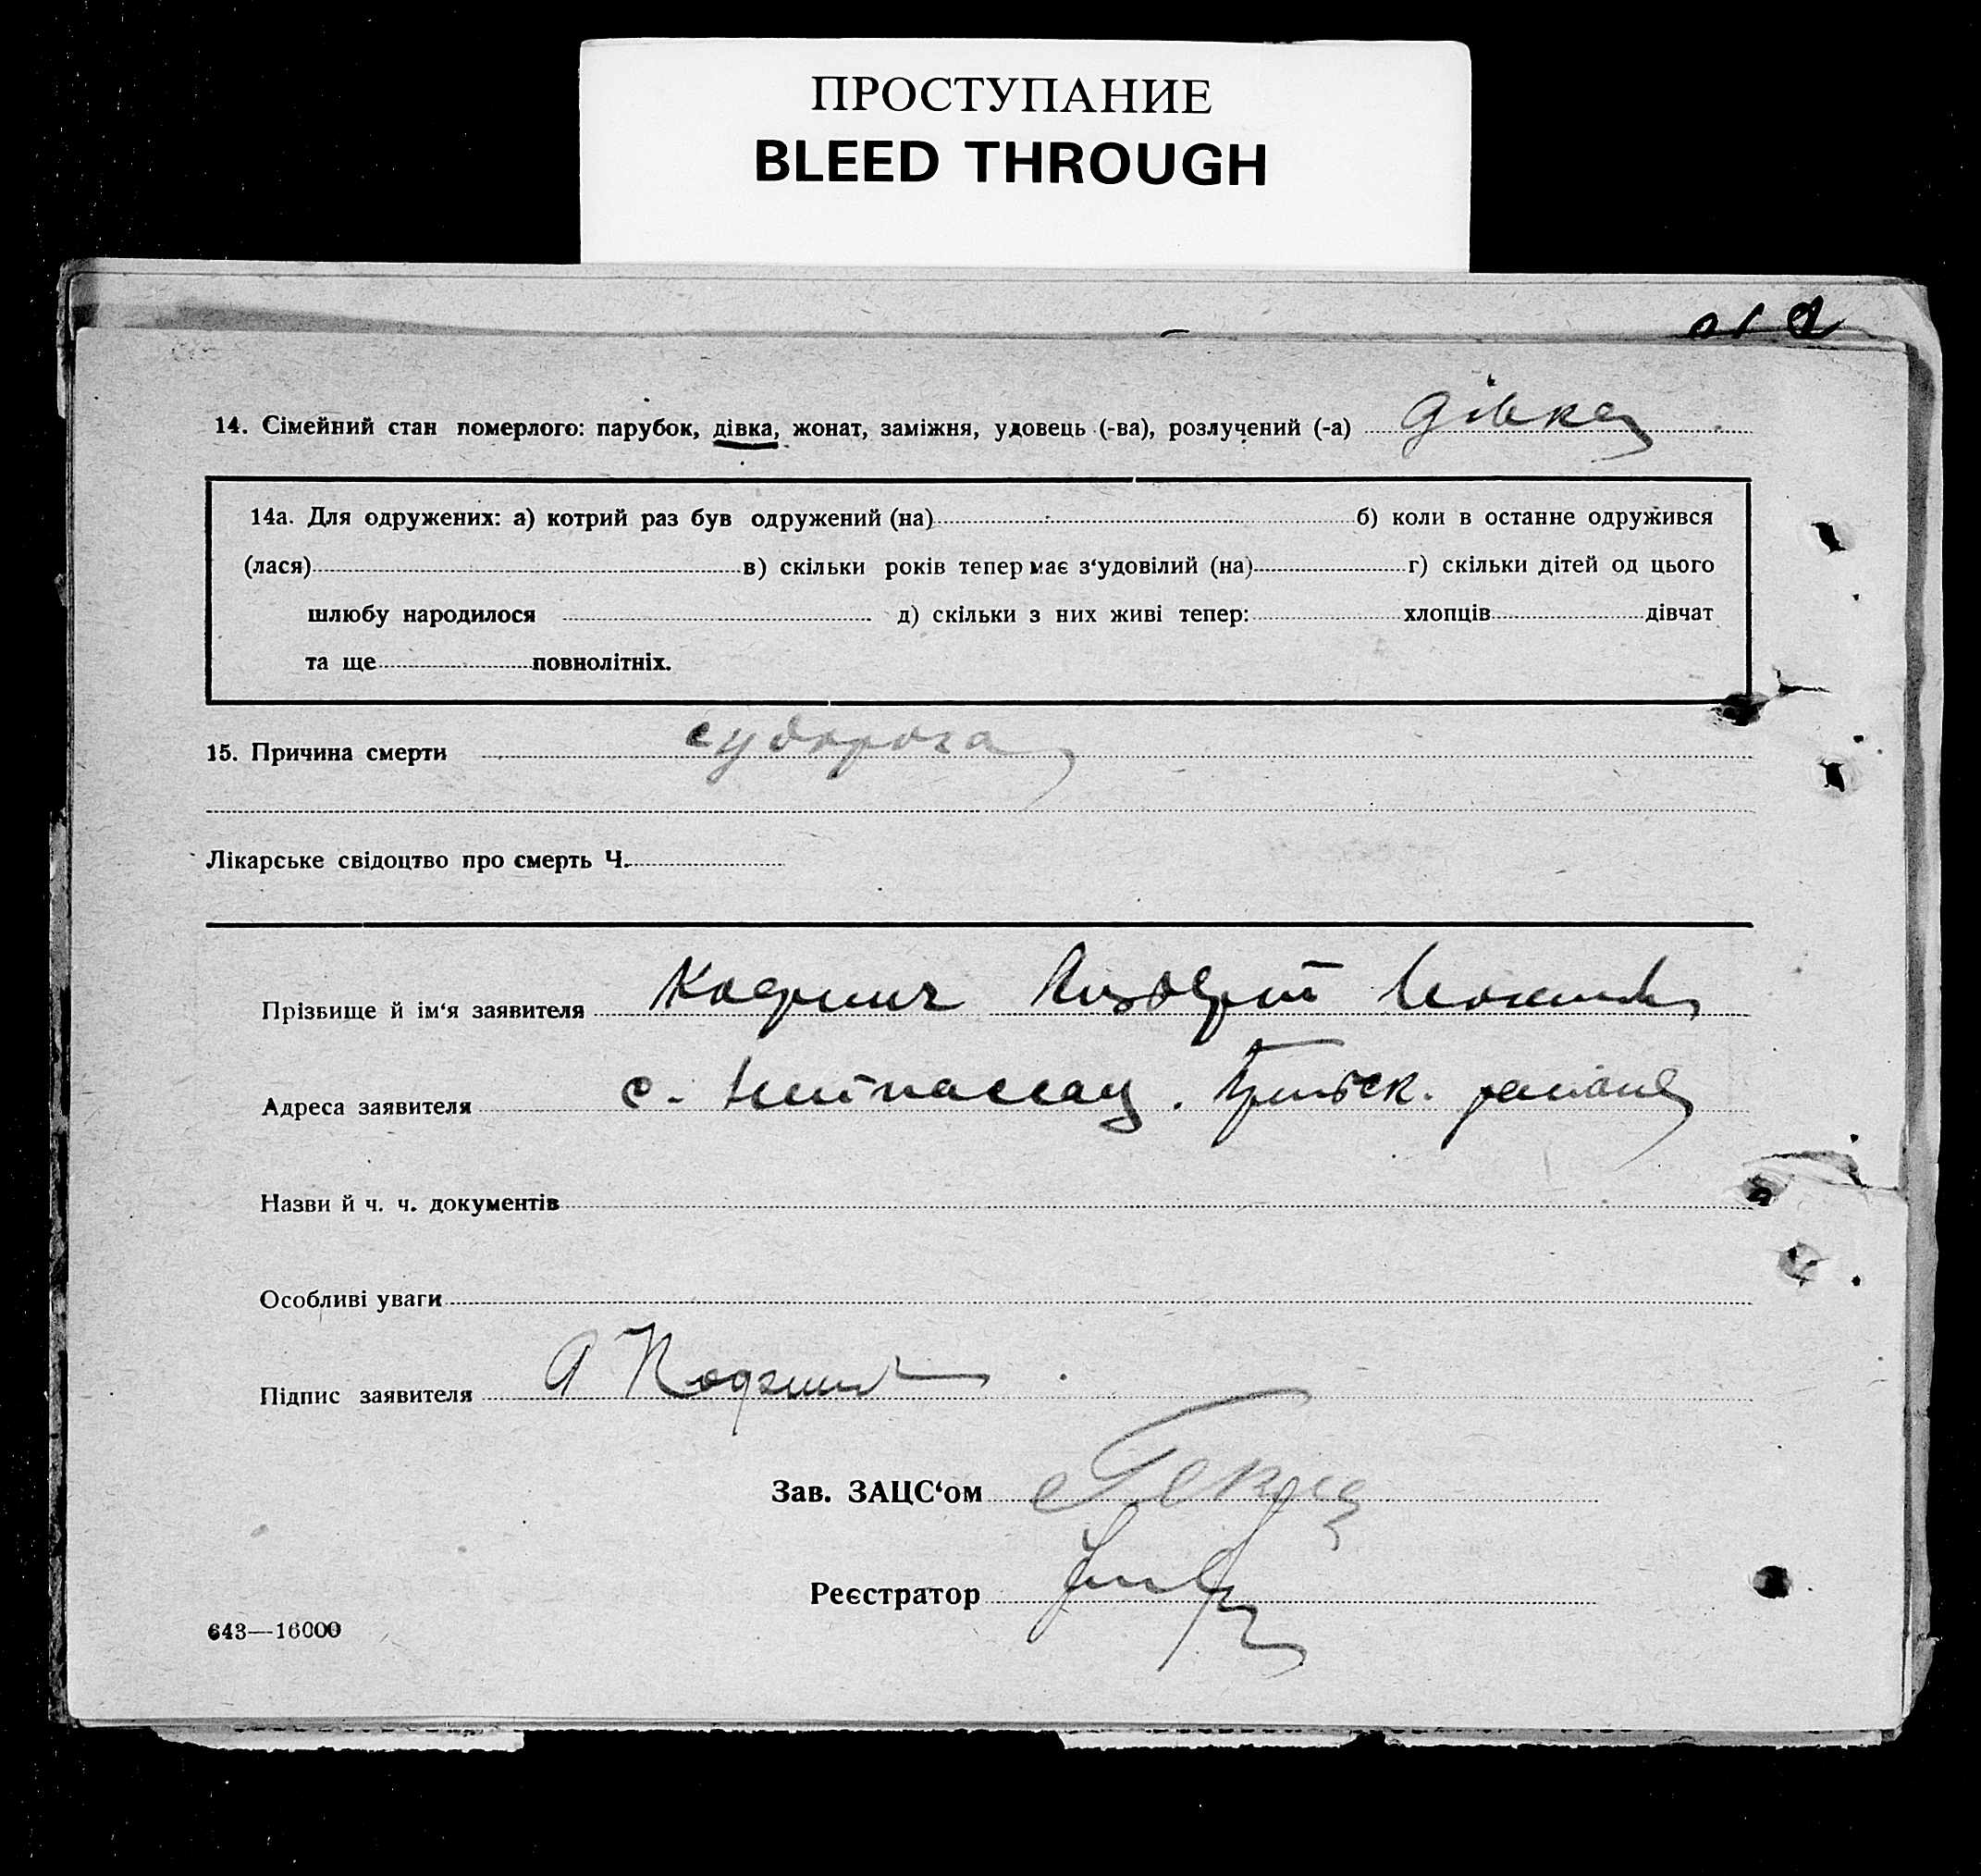 ПРОСТУПАНИЕ
BLEED THROUGH
14. Сімейний стан померлого: парубок, дівка, жонат, заміжня, удовець (-ва), розлучений (-а) дівка
14а. Для одружених: а) котрий раз був одружений (на) б) коли в останнє одружився
(лася) в) скільки років тепер має з‘удовілий (на) г) скільки дітей од цього
шлюбу народилося д) скільки з них живі тепер: хлопців дівчат
та ще повнолітніх.
15. Причина смерти судорога
Лікарське свідоцтво про смерть Ч.
Прізвище й ім‘я заявителя
Адреса заявителя с.
Назви й ч. ч. документів
Особливі уваги
Підпис заявителя
Зав. ЗАЦС‘ом
Реєстратор
643—16000